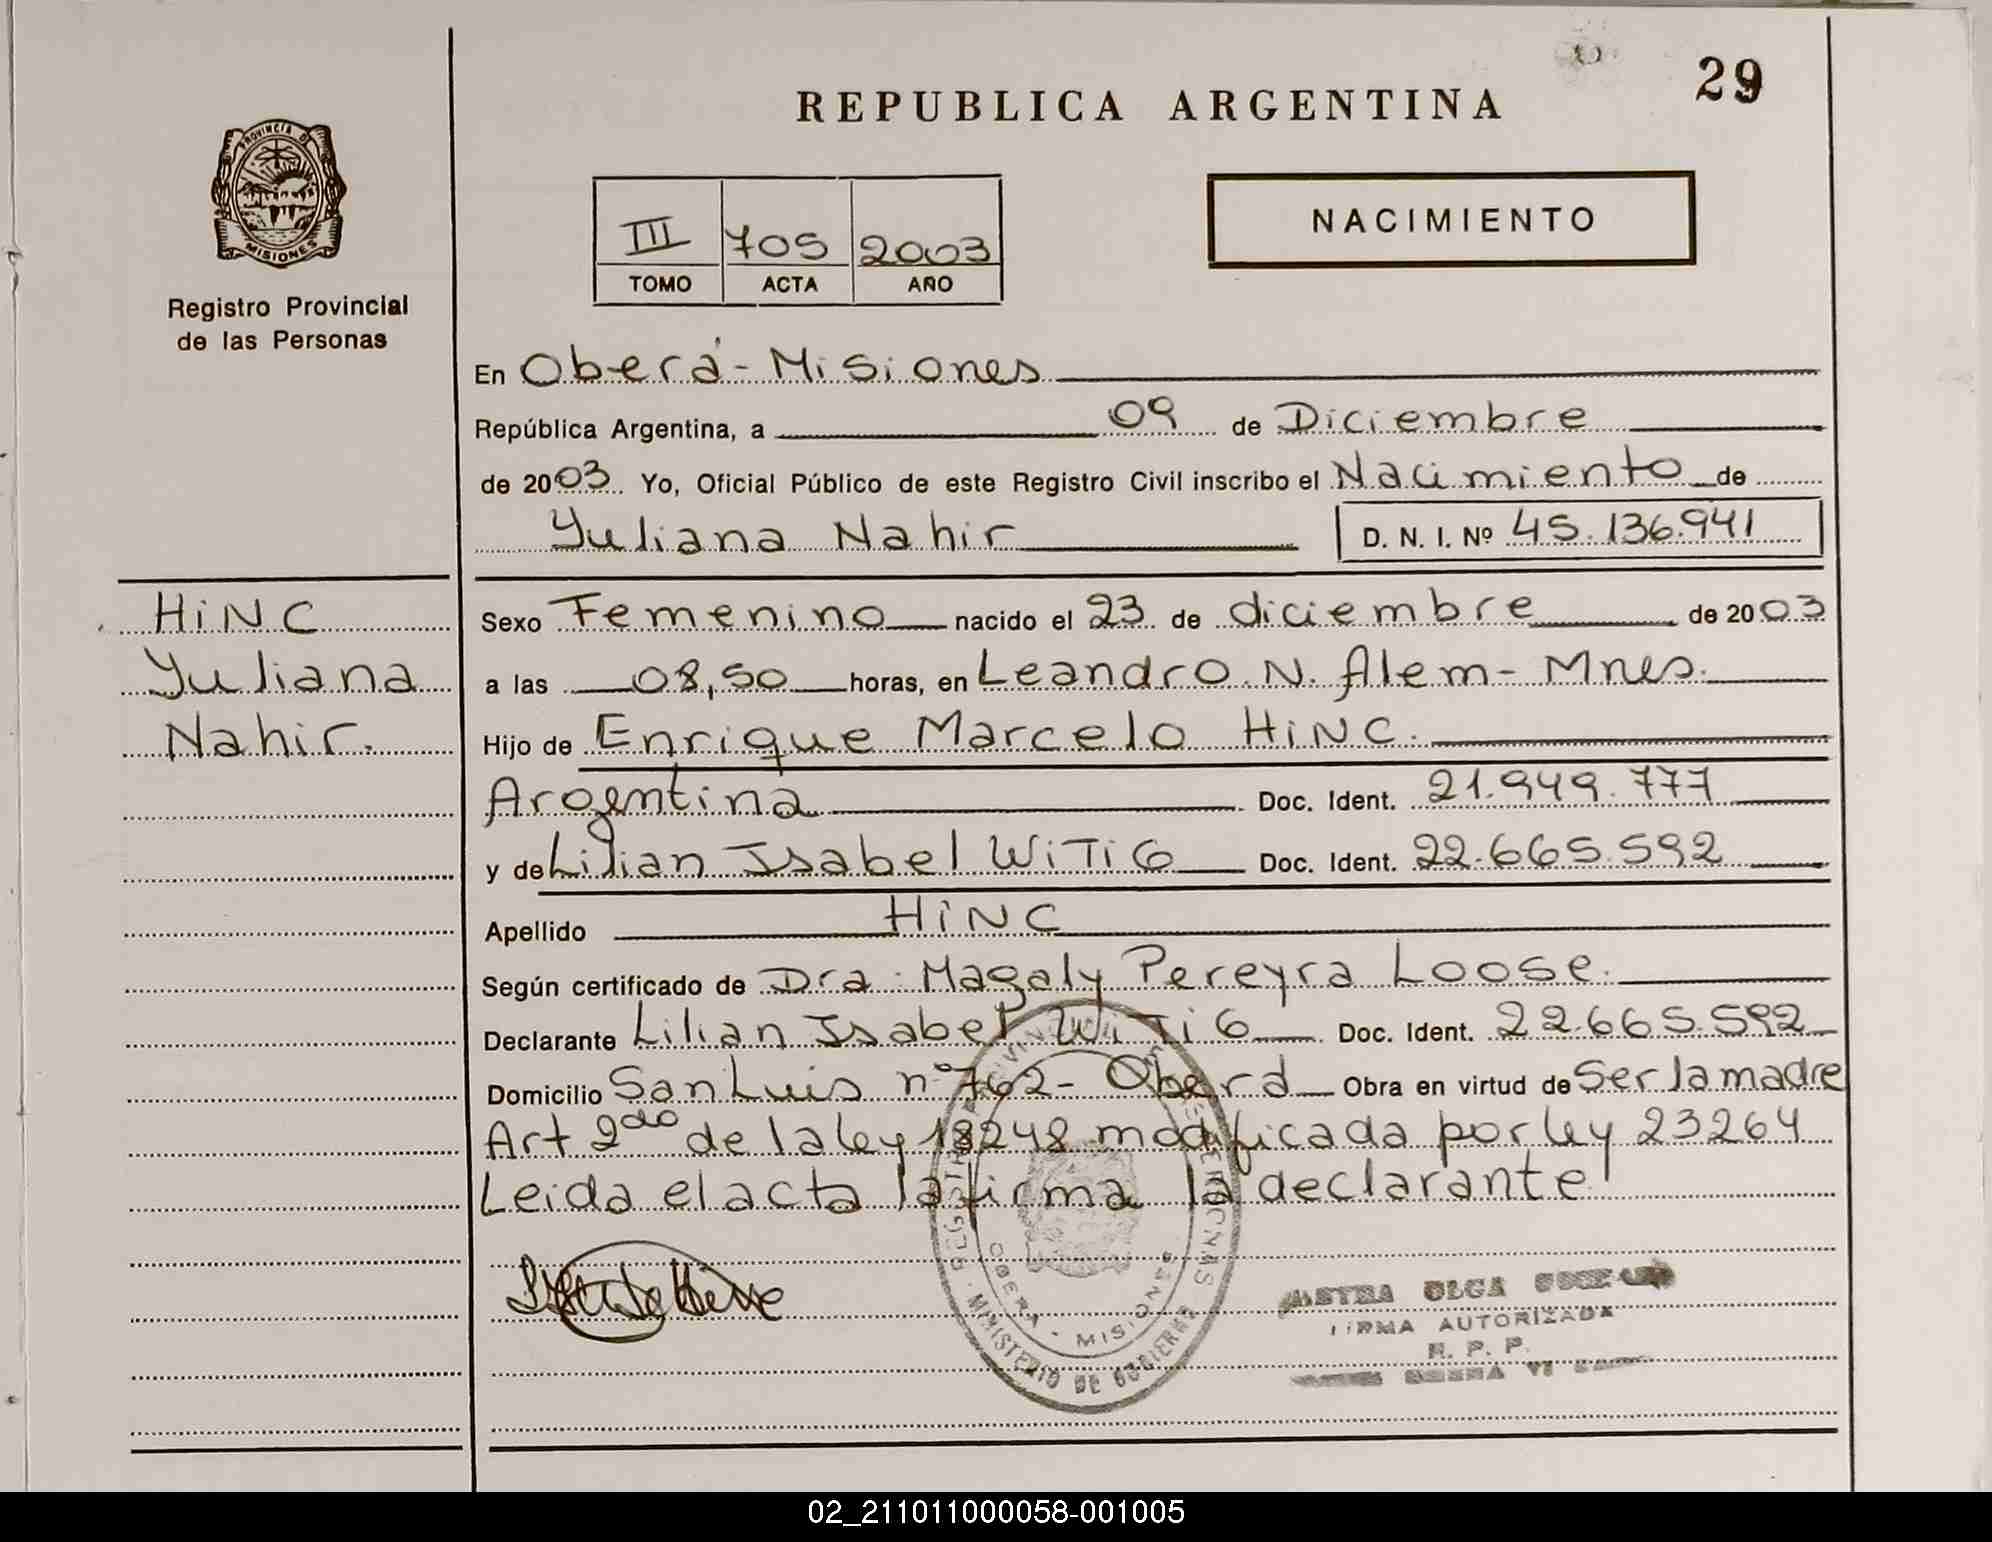 29
REPUBLICA ARGENTINA
PROVINCIA DE
MISIONES
Registro Provincial
de las Personas
NACIMIENTO
III 705 2003
TOMO ACTA AÑO
En Oberá - Misiones
República Argentina, a 09 de Diciembre
de 2003 Yo, Oficial Público de este Registro Civil inscribo el Nacimiento de
Yuliana Nahir D. N. I. Nº 45.136.941
HiNC
Yuliana
Nahir.
Sexo Femenino nacido el 23 de diciembre de 2003
a las 08,50 horas, en Leandro. N. Alem - Mnes.
Hijo de Enrique Marcelo HiNC.
Argentina Doc. Ident. 21.949.777
y de Lilian Isabel WiTiG Doc. Ident. 22.665.592
Apellido HiNC
Según certificado de Dra. Magaly Pereyra Loose.
Declarante Lilian Isabel WiTiG Doc. Ident. 22.665.592
Domicilio San Luis nº 762 - Oberá Obra en virtud de Ser la madre
Art 2do de la ley 18248 modificada por ley 23264
Leida el acta la firma la declarante
MINISTERIO DE GOBIERNO
OBERA - MISIONES
OLGA
FIRMA AUTORIZADA
R. P. P.
02_211011000058-001005